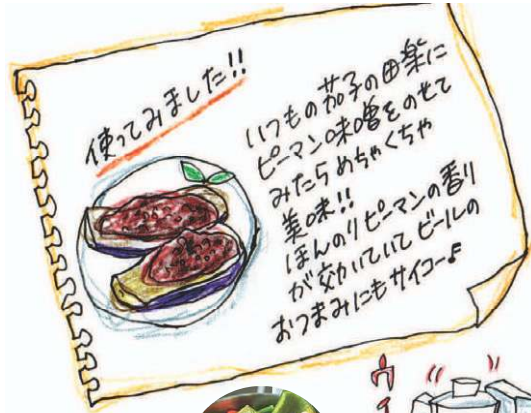 使ってみました!!
いつもの茄子の田楽に
ピーマン味噌をのせて
みたらめちゃくちゃ
美味!!
ほんのりピーマンの香り
が効いていてビールの
おつまみにもサイコー♪